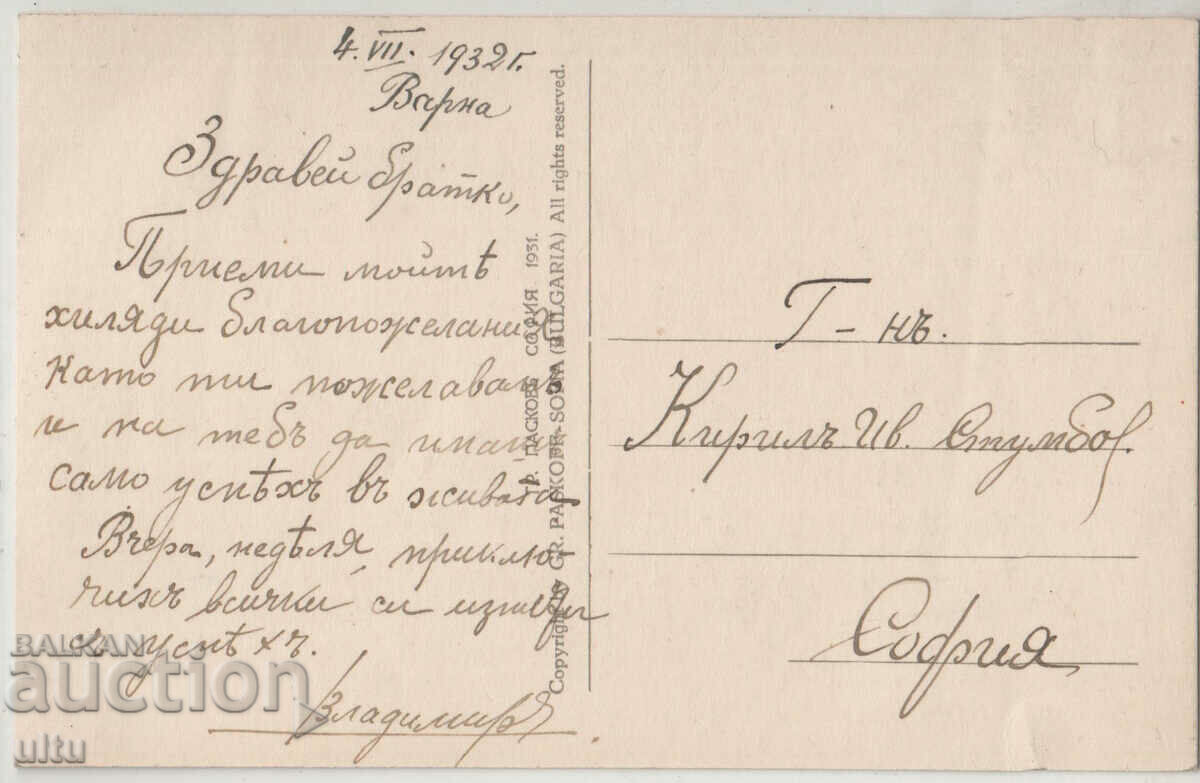 4. VII. 1932 г.
Варна
Здравей братко,
Приеми моитѣ
хиляди благопожелания,
като ти пожелавамъ
и на тебъ да имашъ
само успѣхъ въ живота
Вчера, недѣля, приклю-
чихъ всички си изпити
съ успѣхъ.
Владимиръ
ГР. ПАСКОВЪ СОФИЯ 1931.
Copyright by GR. PASKOFF-SOFIA (BULGARIA) All rights reserved.
Г-нъ.
Кирилъ Ив. Стумбов.
София
BALKAN
auction
ultu